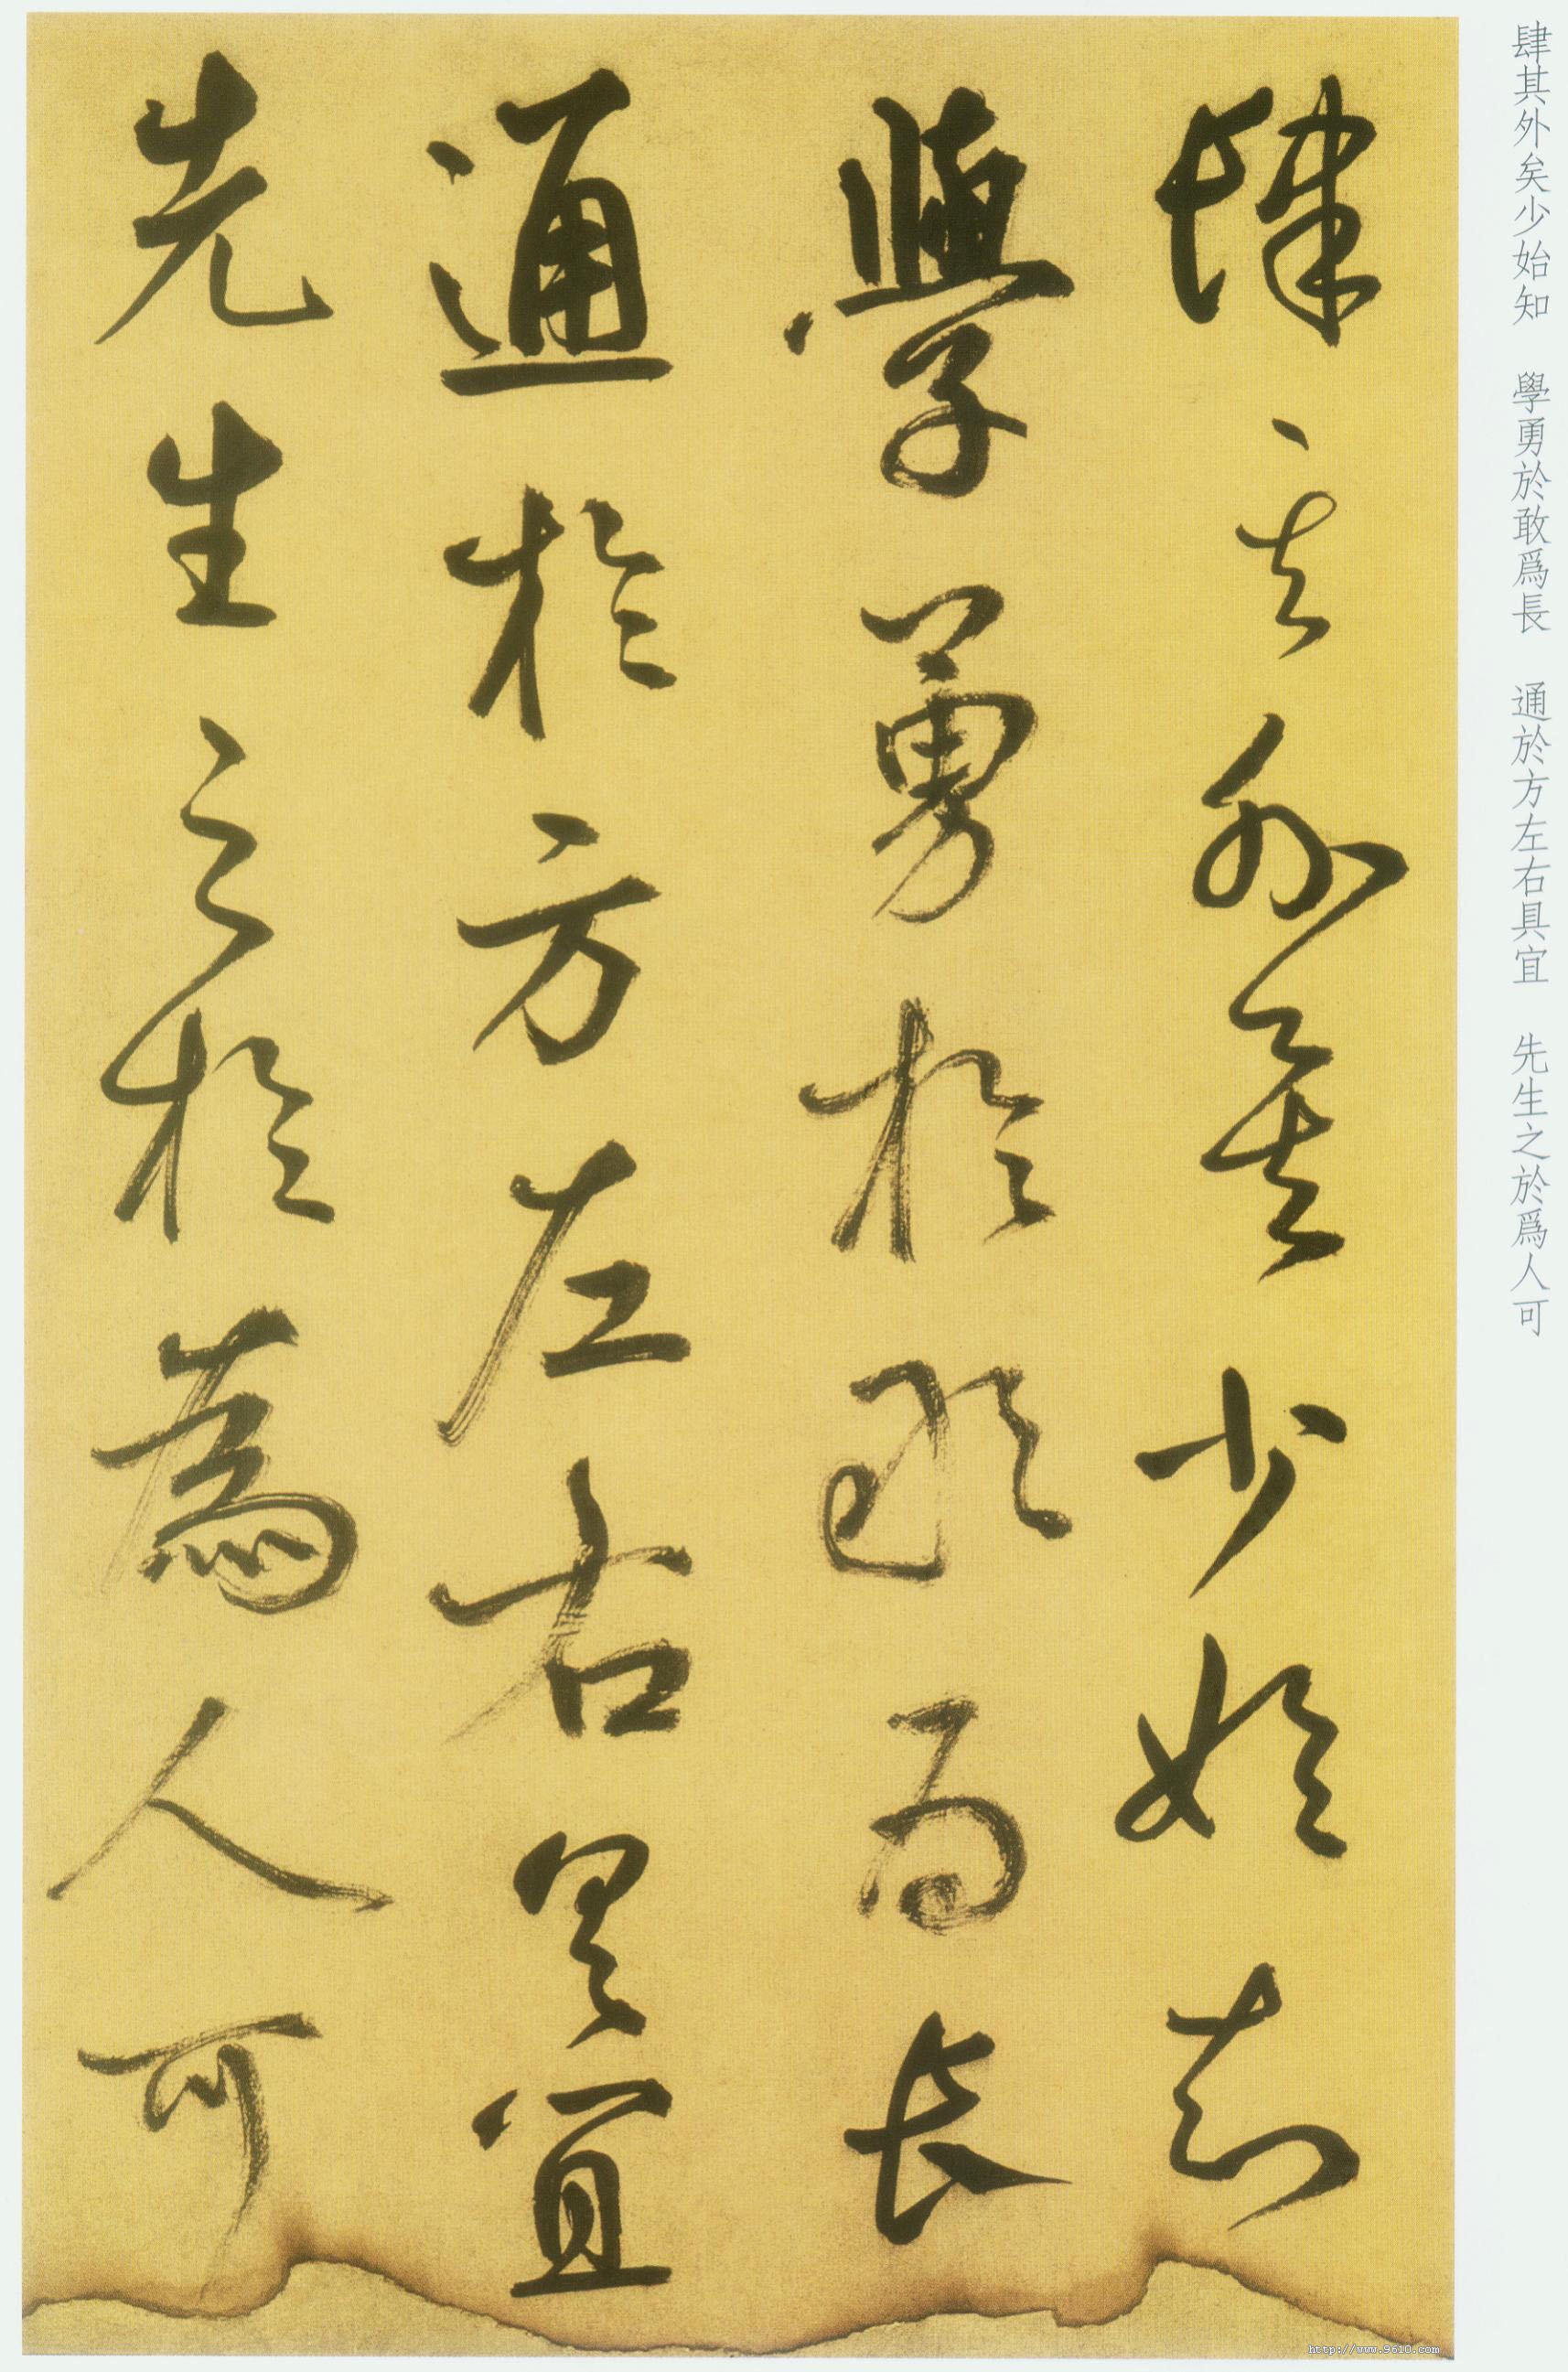 肆其外矣少始知
學勇於敢爲長
通於方左右具宜
先生之於爲人可
肆其外矣少始知 學勇於敢爲長 通於方左右具宜 先生之於爲人可
http://www.9610.com